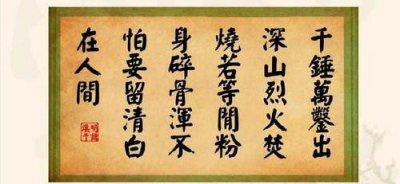 千錘萬鑿出
深山烈火焚
燒若等閒粉
身碎骨渾不
怕要留清白
在人間